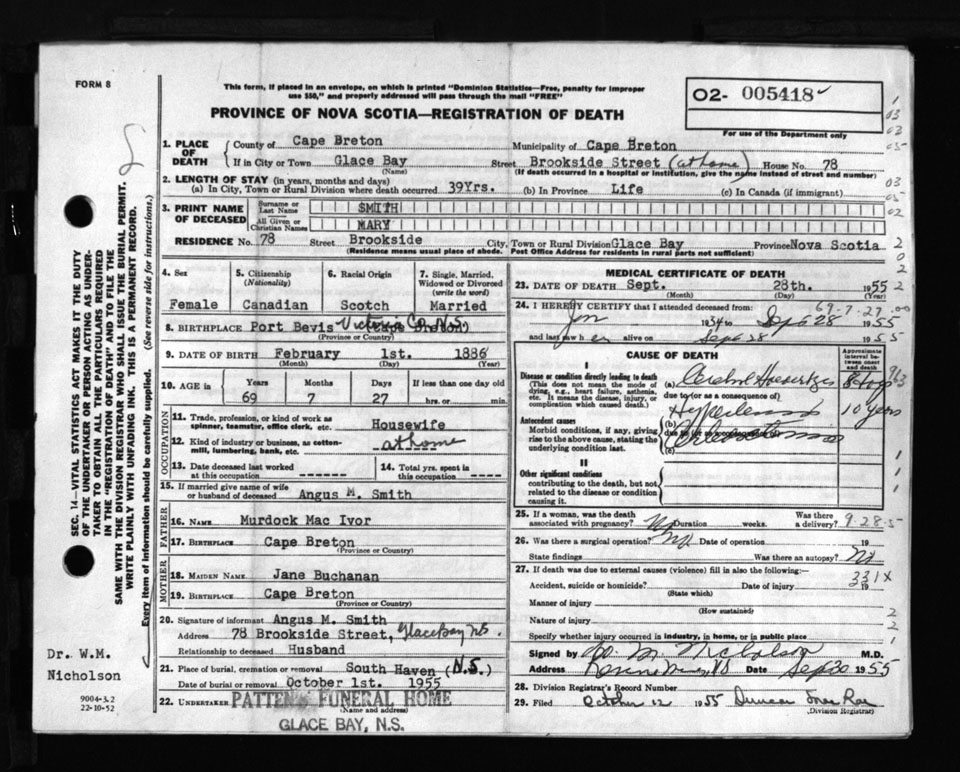 FORM 8
This form, if placed in an envelope, on which is printed "Dominion Statistics—Free, penalty for improper
use $50," and properly addressed will pass through the mail "FREE"
02- 005418
For use of the Department only
PROVINCE OF NOVA SCOTIA—REGISTRATION OF DEATH
1. PLACE OF DEATH
County of Cape Breton Municipality of Cape Breton
If in City or Town Glace Bay Street Brookside Street (at home) House No. 78
(Name) (If death occurred in a hospital or institution, give the name instead of street and number)
2. LENGTH OF STAY (in years, months and days)
(a) In City, Town or Rural Division where death occurred 39Yrs. (b) In Province Life (c) In Canada (if immigrant)
3. PRINT NAME OF DECEASED
Surname or Last Name SMITH
All Given or Christian Names MARY
RESIDENCE No. 78 Street Brookside City, Town or Rural Division Glace Bay Province Nova Scotia
(Residence means usual place of abode. Post Office Address for residents in rural parts not sufficient)
4. Sex
Female
5. Citizenship
(Nationality)
Canadian
6. Racial Origin
Scotch
7. Single, Married,
Widowed or Divorced
(write the word)
Married
8. BIRTHPLACE Port Bevis Victoria Co. N.S.
(Province or Country)
9. DATE OF BIRTH February 1st. 1886
(Month) (Day) (Year)
10. AGE in
Years Months Days If less than one day old
69 7 27 hrs. or min.
OCCUPATION
11. Trade, profession, or kind of work as
spinner, teamster, office clerk, etc. Housewife
12. Kind of industry or business, as cotton-
mill, lumbering, bank, etc. at home
13. Date deceased last worked
at this occupation -----
14. Total yrs. spent in
this occupation -----
15. If married give name of wife
or husband of deceased Angus M. Smith
FATHER
16. NAME Murdock Mac Ivor
17. BIRTHPLACE Cape Breton
(Province or Country)
MOTHER
18. MAIDEN NAME Jane Buchanan
19. BIRTHPLACE Cape Breton
(Province or Country)
20. Signature of informant Angus M. Smith
Address 78 Brookside Street, Glace Bay N.S.
Relationship to deceased Husband
21. Place of burial, cremation or removal South Haven (N.S.)
Date of burial or removal October 1st. 1955
22. UNDERTAKER PATTEN FUNERAL HOME
(Name and address)
GLACE BAY, N.S.
MEDICAL CERTIFICATE OF DEATH
23. DATE OF DEATH Sept. 28th. 1955
(Month) (Day) (Year)
69-7-27
24. I HEREBY CERTIFY that I attended deceased from:
Jan 1954 to Sept 28 1955
and last saw her alive on Sept 28 1955
CAUSE OF DEATH
Approximate
interval between
onset and
death
I
Disease or condition directly leading to death
(This does not mean the mode of
dying, e.g., heart failure, asthenia,
etc. It means the disease, injury, or
complication which caused death.)
(a) Cerebral
due to (or as a consequence of)
Antecedent causes
Morbid conditions, if any, giving
rise to the above cause, stating the
underlying condition last.
(b) 10 years
(c)
II
Other significant conditions
contributing to the death, but not
related to the disease or condition
causing it.
25. If a woman, was the death
associated with pregnancy? No Duration weeks. Was there
a delivery? 9-28-5
26. Was there a surgical operation? No Date of operation 19
State findings Was there an autopsy? No
27. If death was due to external causes (violence) fill in also the following:—
331X
Accident, suicide or homicide? Date of injury 19
(State which)
Manner of injury
(How sustained)
Nature of injury
Specify whether injury occurred in industry, in home, or in public place
Signed by M. Nicholson M.D.
Address Date Sep 30 1955
28. Division Registrar's Record Number
29. Filed October 12 1955 Duncan
(Division Registrar)
SEC. 14—VITAL STATISTICS ACT MAKES IT THE DUTY
OF THE UNDERTAKER OR PERSON ACTING AS UNDER-
TAKER TO OBTAIN ALL THE PARTICULARS REQUIRED
IN THE "REGISTRATION OF DEATH" AND TO FILE THE
SAME WITH THE DIVISION REGISTRAR WHO SHALL ISSUE THE BURIAL PERMIT.
WRITE PLAINLY WITH UNFADING INK. THIS IS A PERMANENT RECORD.
Every item of information should be carefully supplied. (See reverse side for instructions.)
Dr. W.M.
Nicholson
9004-3.2
22-10-52